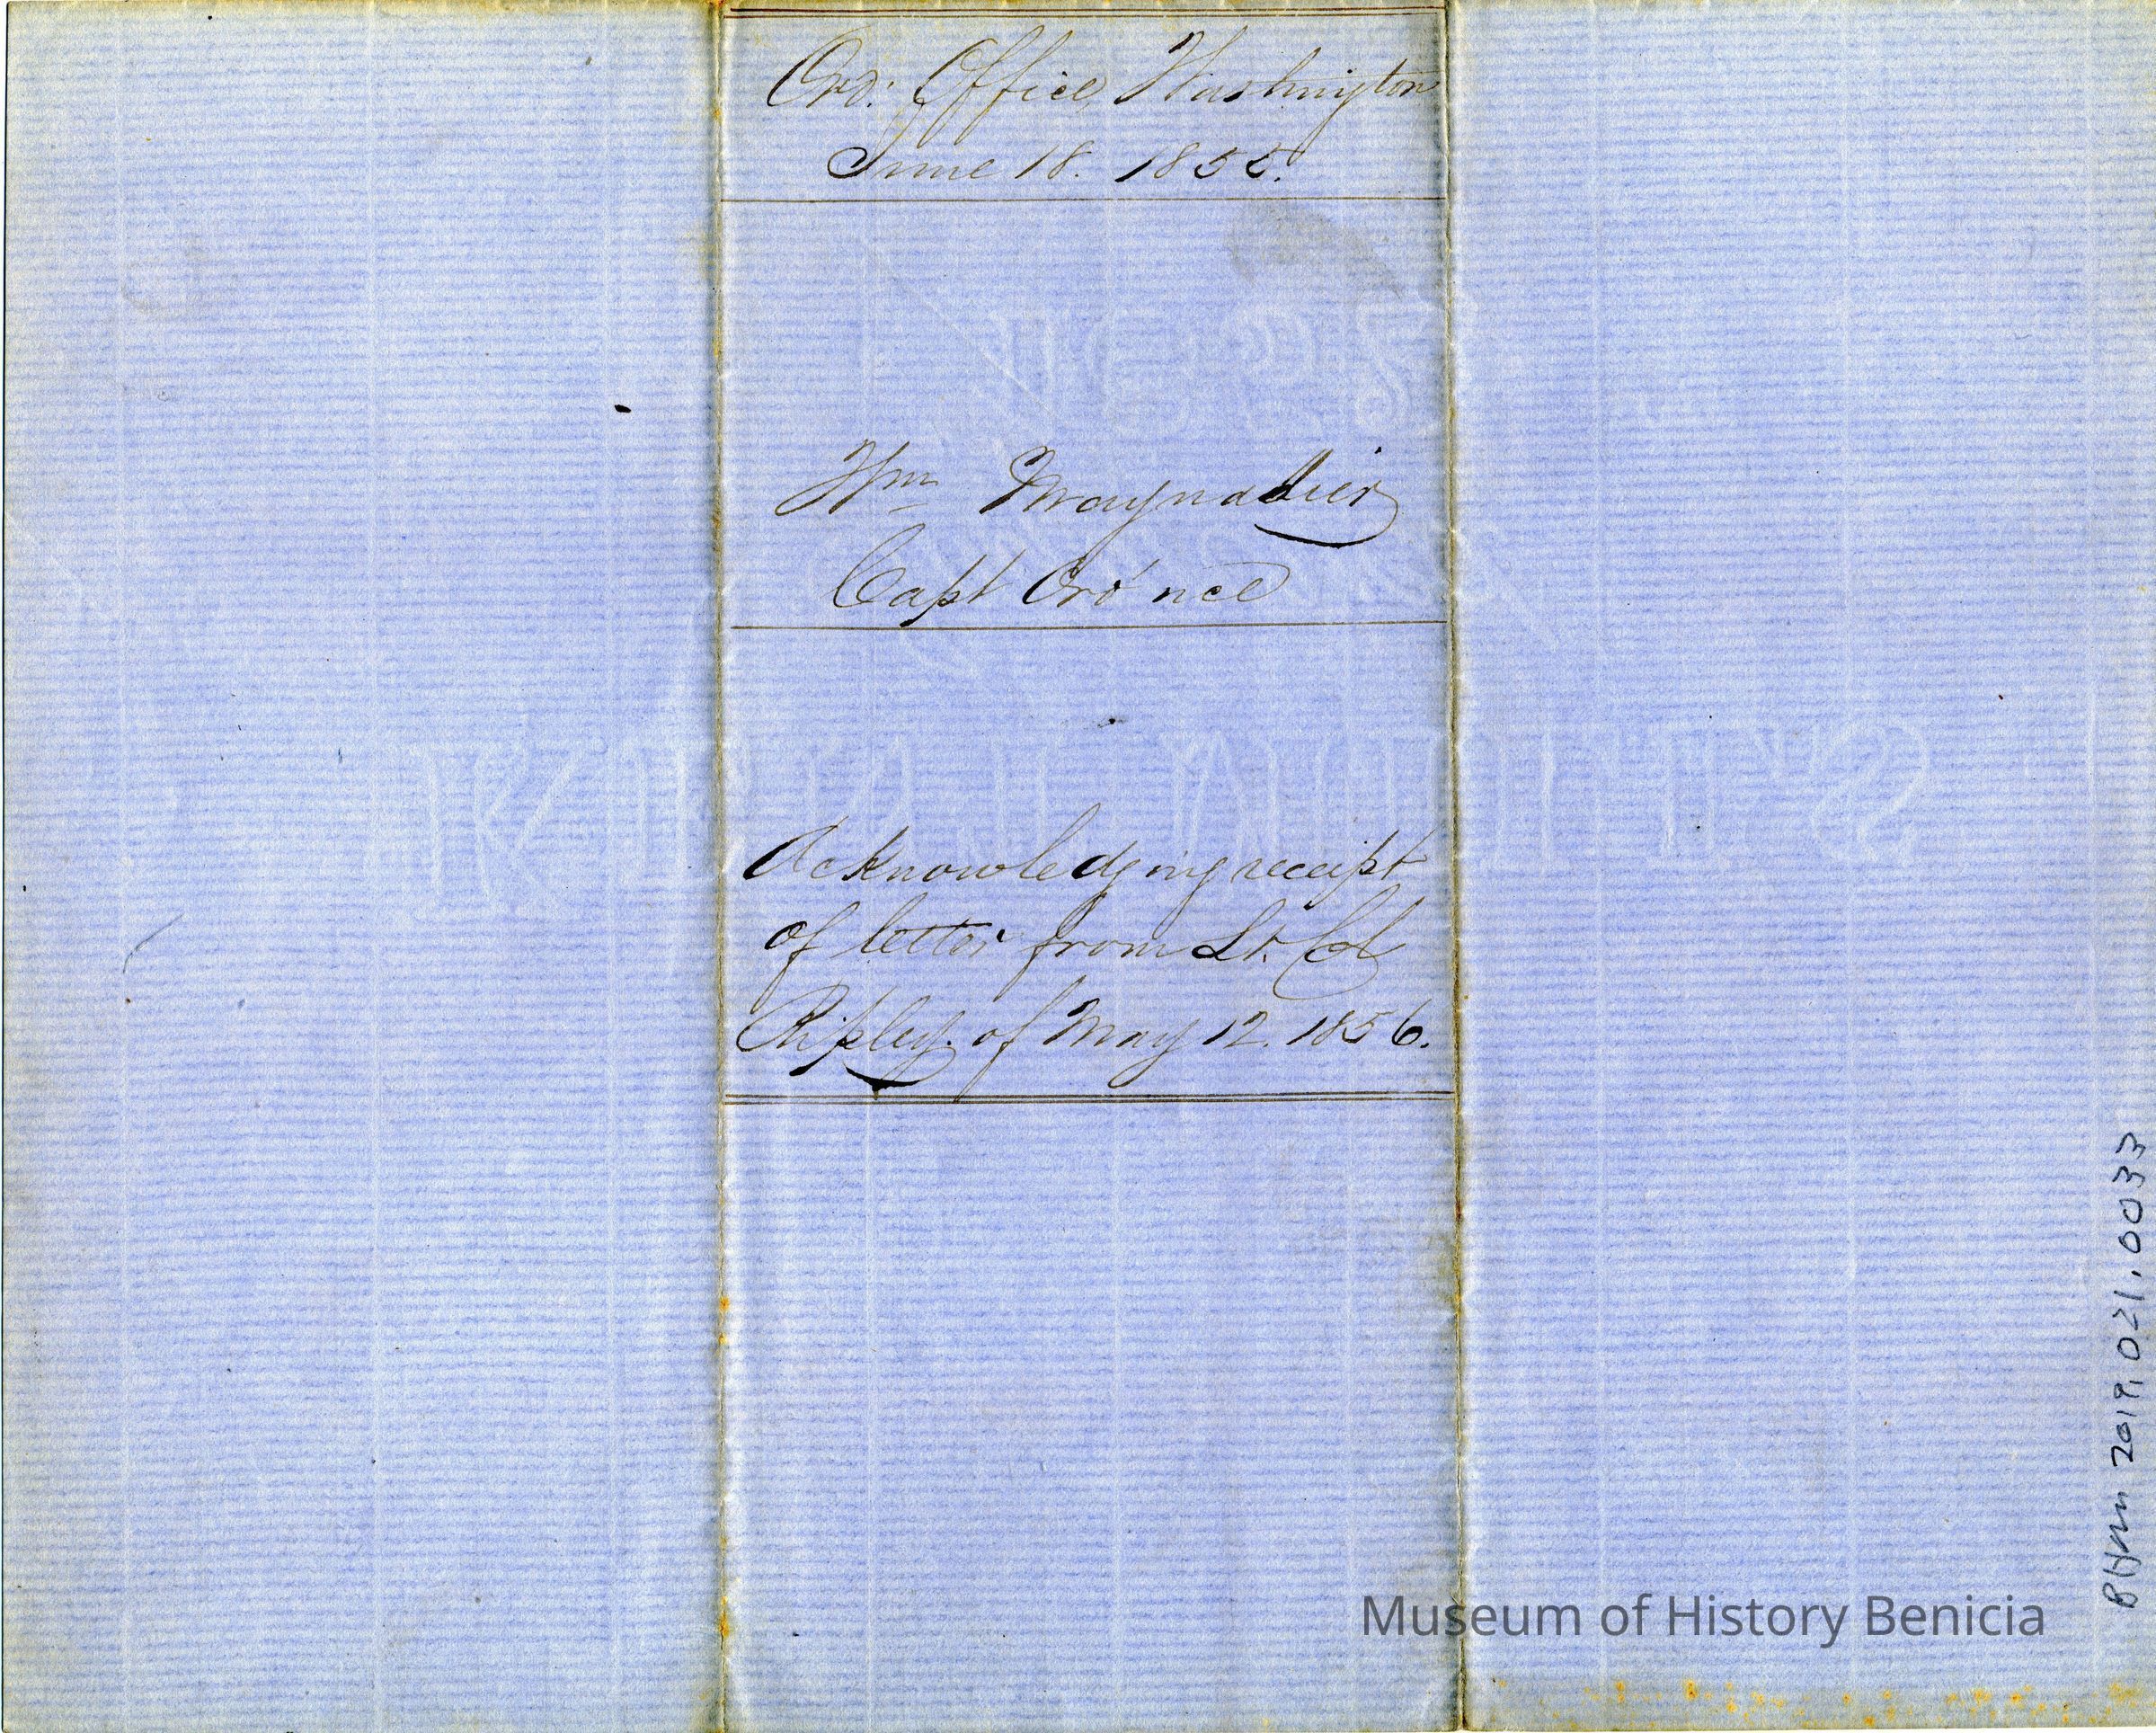 Ord: Office, Washington
June 18. 1855.
Wm Maynadier
Capt Ord'nce
Acknowledging receipt
of letter from Lt. Col
Ripley of May 12. 1856.
BHM 2019.021.0033
Museum of History Benicia